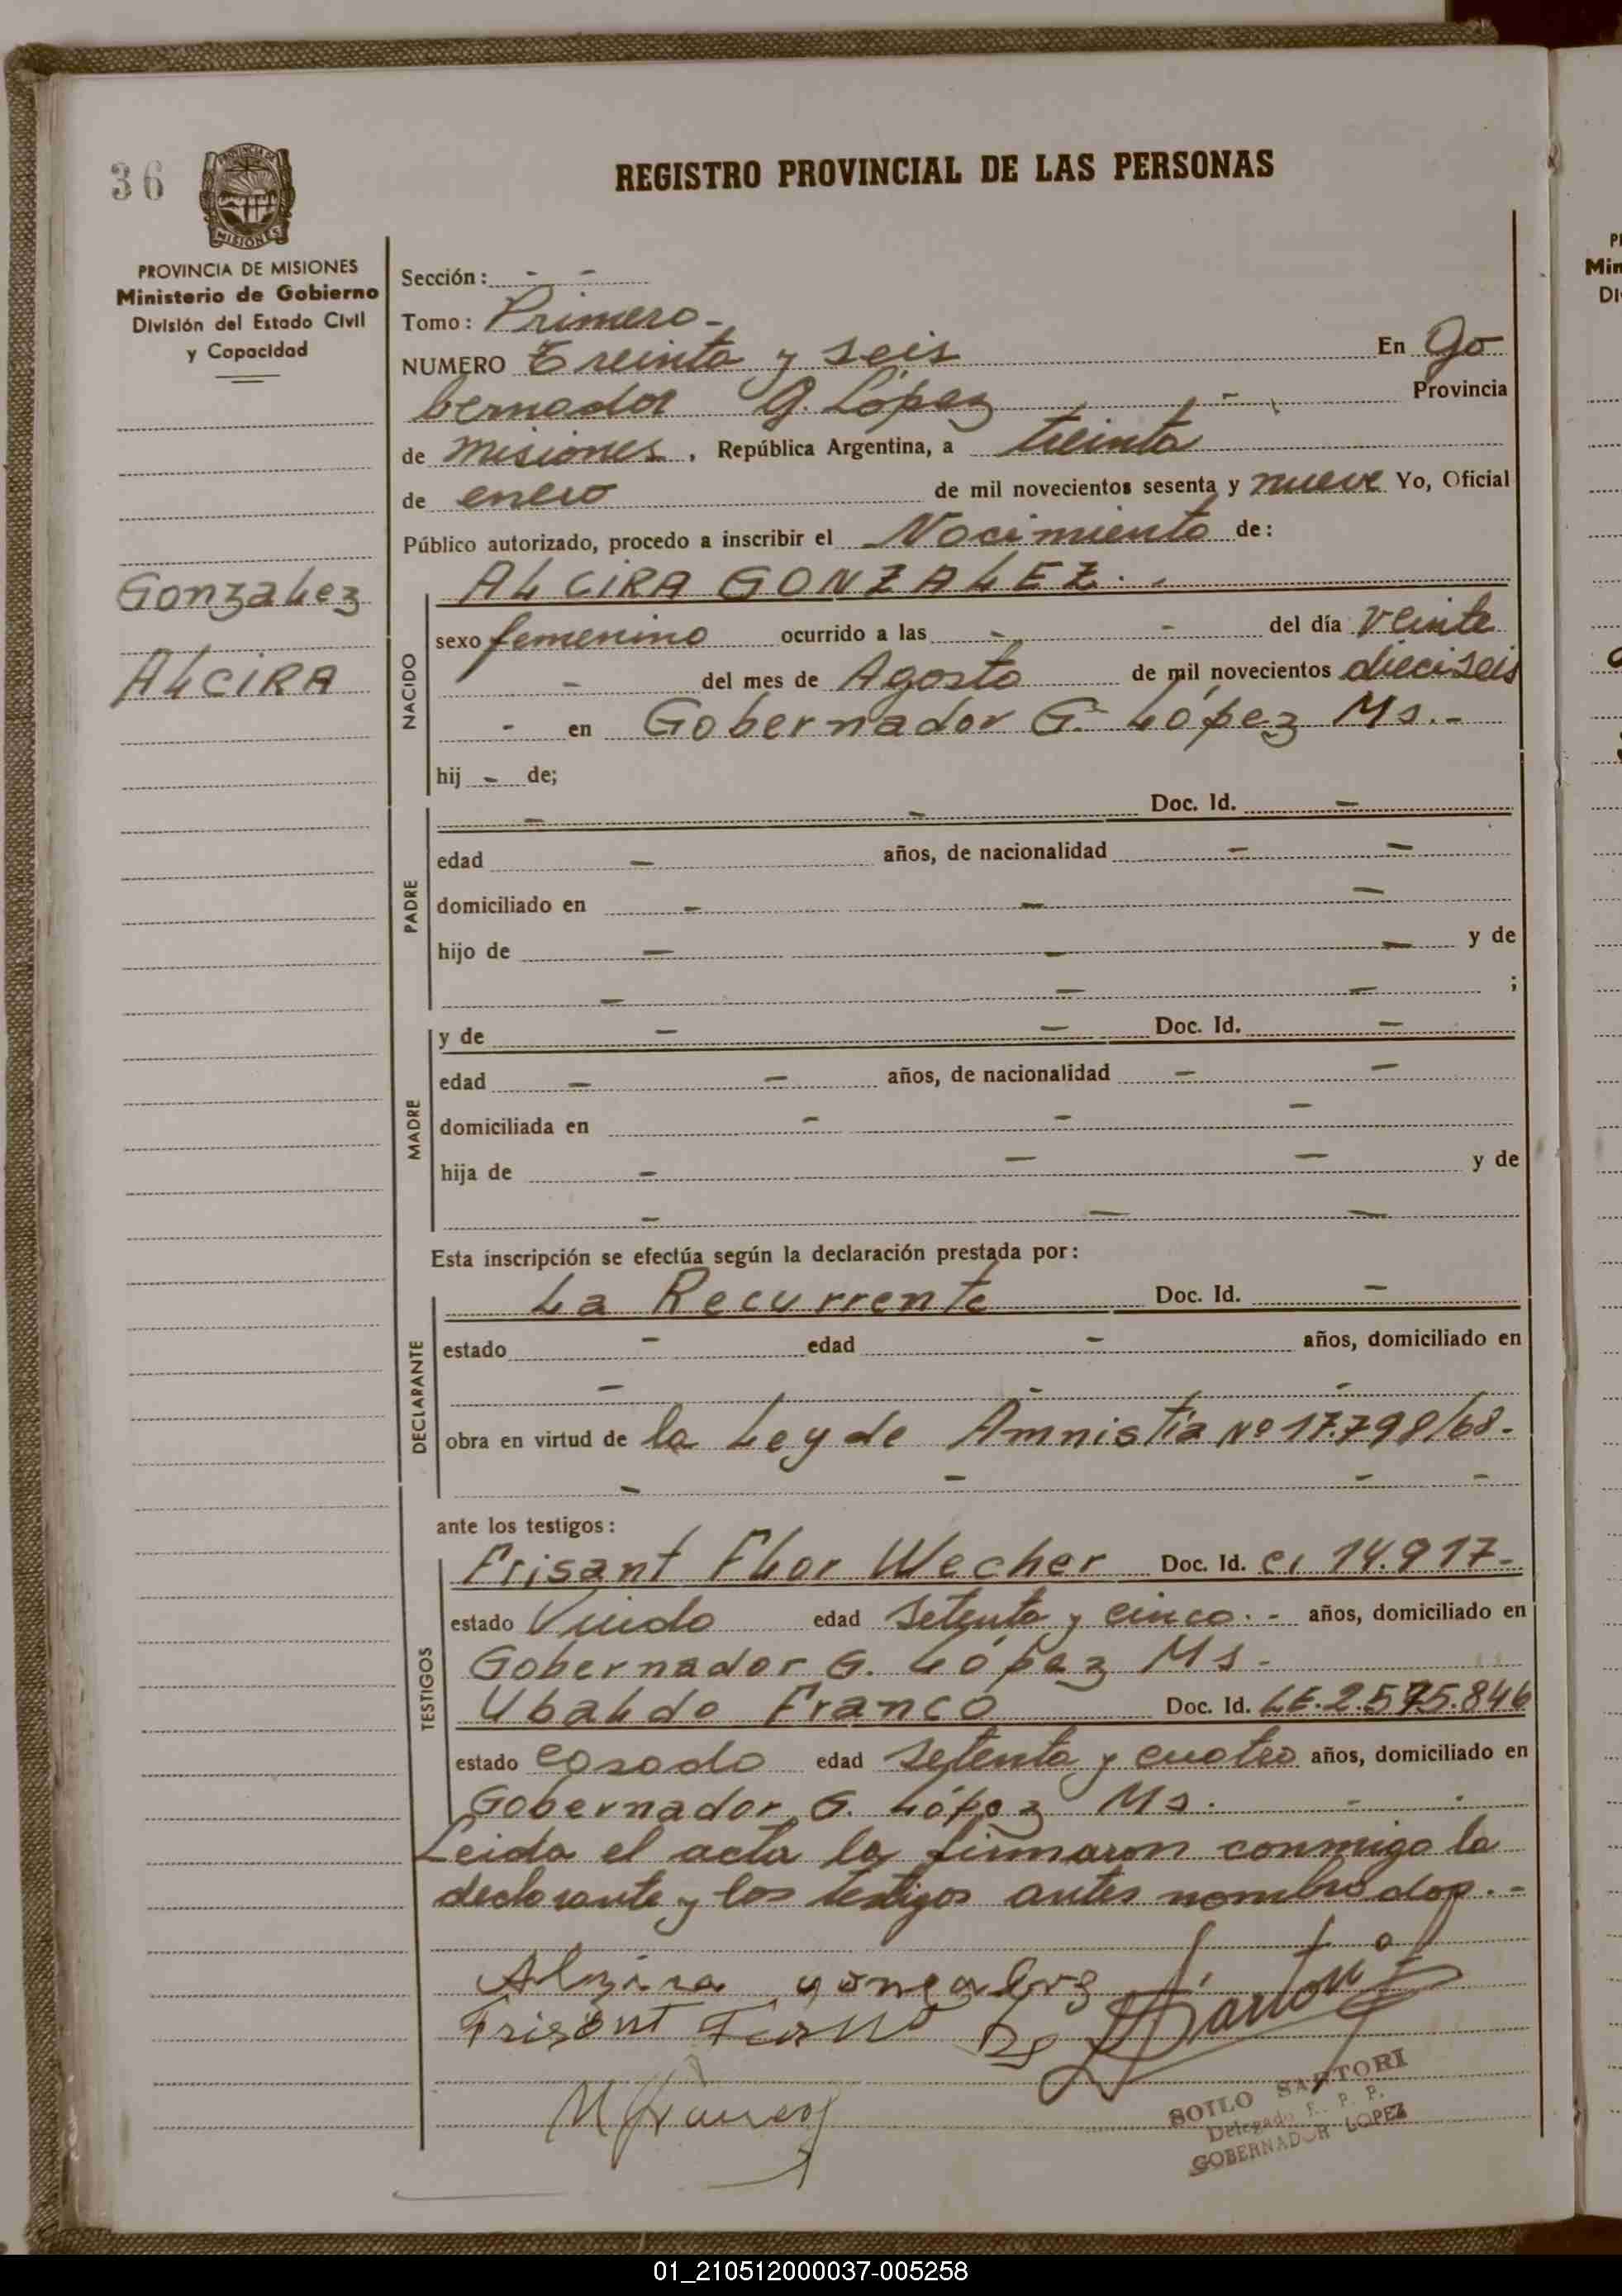 36
PROVINCIA DE MISIONES
REGISTRO PROVINCIAL DE LAS PERSONAS
PROVINCIA DE MISIONES
Ministerio de Gobierno
División del Estado Civil
y Capacidad
Sección: - -
Tomo: Primero -
NUMERO Treinta y seis En Go
bernador G. López - Provincia
de misiones, República Argentina, a treinta
de enero de mil novecientos sesenta y nueve Yo, Oficial
Público autorizado, procedo a inscribir el Nacimiento de:
Gonzalez
ALCIRA
NACIDO
ALCIRA GONZALEZ. -
sexo femenino ocurrido a las - - del día veinte
- del mes de Agosto de mil novecientos dieciseis
- en Gobernador G. López Ms. -
hij - de;
PADRE
- - Doc. Id. -
edad - años, de nacionalidad - -
domiciliado en - - -
hijo de - - - y de
- - - ;
MADRE
y de - - Doc. Id. -
edad - - años, de nacionalidad - -
domiciliada en - - -
hija de - - - y de
- - -
Esta inscripción se efectúa según la declaración prestada por:
DECLARANTE
La Recurrente Doc. Id. -
estado - edad - años, domiciliado en
- - -
obra en virtud de la Ley de Amnistía Nº 17.798/68-
- - - -
ante los testigos:
TESTIGOS
Frisant Flor Wecher Doc. Id. CI 14.917-
estado Viudo edad setenta y cinco. - años, domiciliado en
Gobernador G. López Ms -
Ubaldo Franco Doc. Id. LE. 2.575.846
estado casado edad setenta y cuatro años, domiciliado en
Gobernador G. López Ms. - -
Leida el acta la firmaron conmigo la
declarante y los testigos antes nombrados. -
Alzira gonçalvz
Frisant
SOILO SARTORI
Delegado R. P. P.
GOBERNADOR LOPEZ
01_210512000037-005258